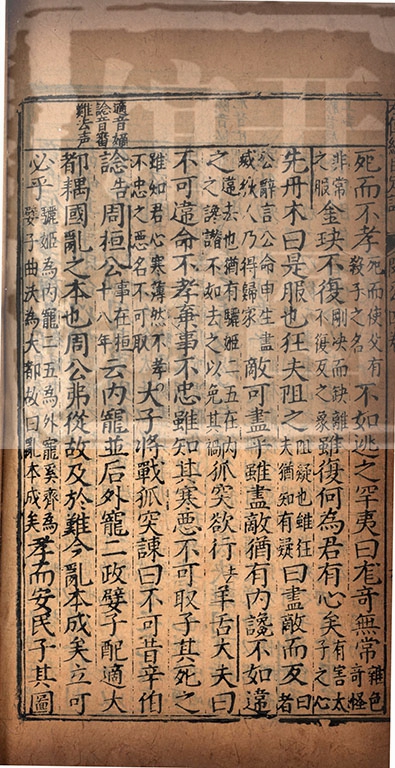 死而不孝死而使父有殺子之名不如逃之罕夷曰尨奇無常雜色奇怪
非常之服金玦不復剛決而缺離不復反之象雖復何為君有心矣有害太子之心
先丹木曰是服也狂夫阻之阻疑也雖狂夫猶知有疑曰盡敵而反曰者
公辭言公命申生盡滅狄人乃得歸家敵可盡乎雖盡敵猶有內讒不如違
之違去也猶有驪姬二五在內之讒譖不如去之以免其禍狐突欲行羊舌大夫曰
不可違命不孝棄事不忠雖知其寒惡不可取子其死之
雖知君心寒薄然不孝不忠之惡名不可取大子將戰狐突諫曰不可昔辛伯
適音嫡
諗音審
難去声
諗告周桓公事在桓十八年云內寵並后外寵二政嬖子配適大
都耦國亂之本也周公弗從故及於難今亂本成矣立可
必乎驪姬為內寵二五為外寵奚齊為嬖子曲沃為大都故曰亂本成矣孝而安民子其圖